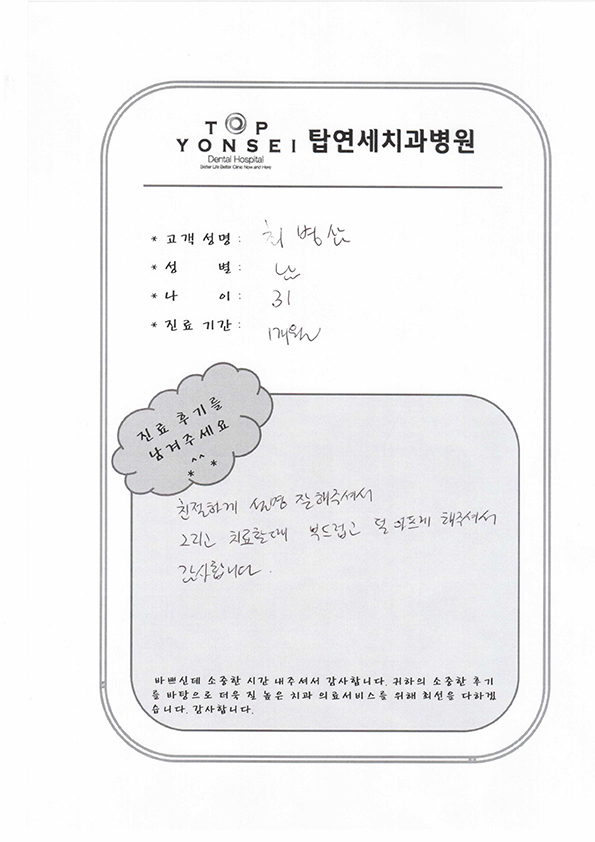 TOP
YONSEI 탑연세치과병원
Dental Hospital
Better Life Better Clinic Now and Here
* 고객 성명 : 최병산
* 성 별 : 남
* 나 이 : 31
* 진료 기간 : 1개월
진료 후기를
남겨주세요
^^
* *
친절하게 설명 잘해주셔서
그리고 치료할때 부드럽고 덜 아프게 해주셔서
감사합니다.
바쁘신데 소중한 시간 내주셔서 감사합니다. 귀하의 소중한 후기
를 바탕으로 더욱 질 높은 치과 의료서비스를 위해 최선을 다하겠
습니다. 감사합니다.